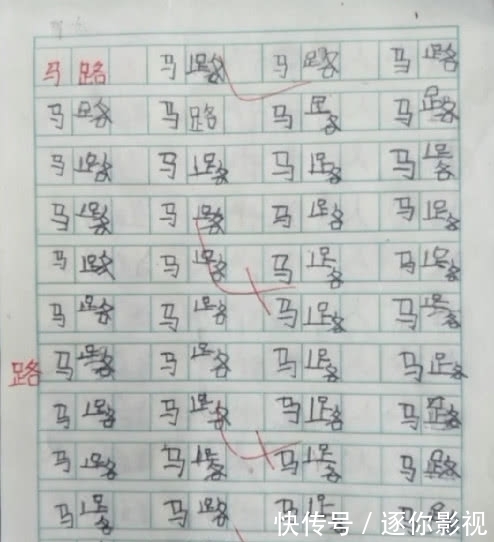 马 路 马 路 马 路 马 路
马 路 马 路 马 路 马 路
马 路 马 路 马 路 马 路
马 路 马 路 马 路 马 路
马 路 马 路 马 路 马 路
马 路 马 路 马 路 马 路
路 马 路 马 路 马 路 马 路
马 路 马 路 马 路 马 路
马 路 马 路 马 路 马 路
马 路 马 路 马 路 马
快传号 / 逐你影视